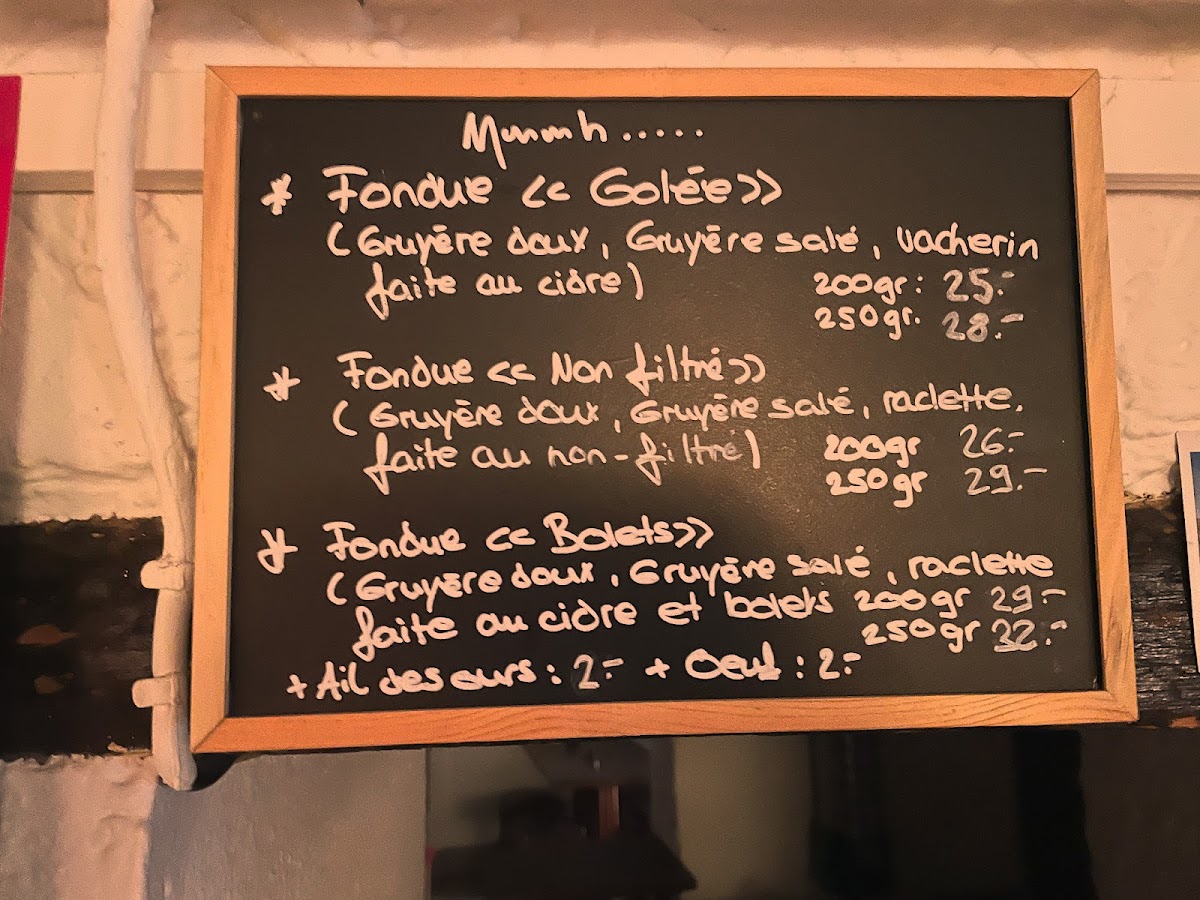 Mmmmh.....
* Fondue << Golée>>
(Gruyère doux, Gruyère salé, vacherin
faite au cidre) 200gr: 25.-
250gr. 28.-
* Fondue << Non filtré>>
(Gruyère doux, Gruyère salé, raclette.
faite au non-filtré) 200gr 26.-
250gr 29.-
* Fondue << Bolets>>
(Gruyère doux, Gruyère salé, raclette
faite au cidre et bolets 200gr 29.-
250gr 32.-
+ Ail des ours: 2.- + Oeuf: 2.-